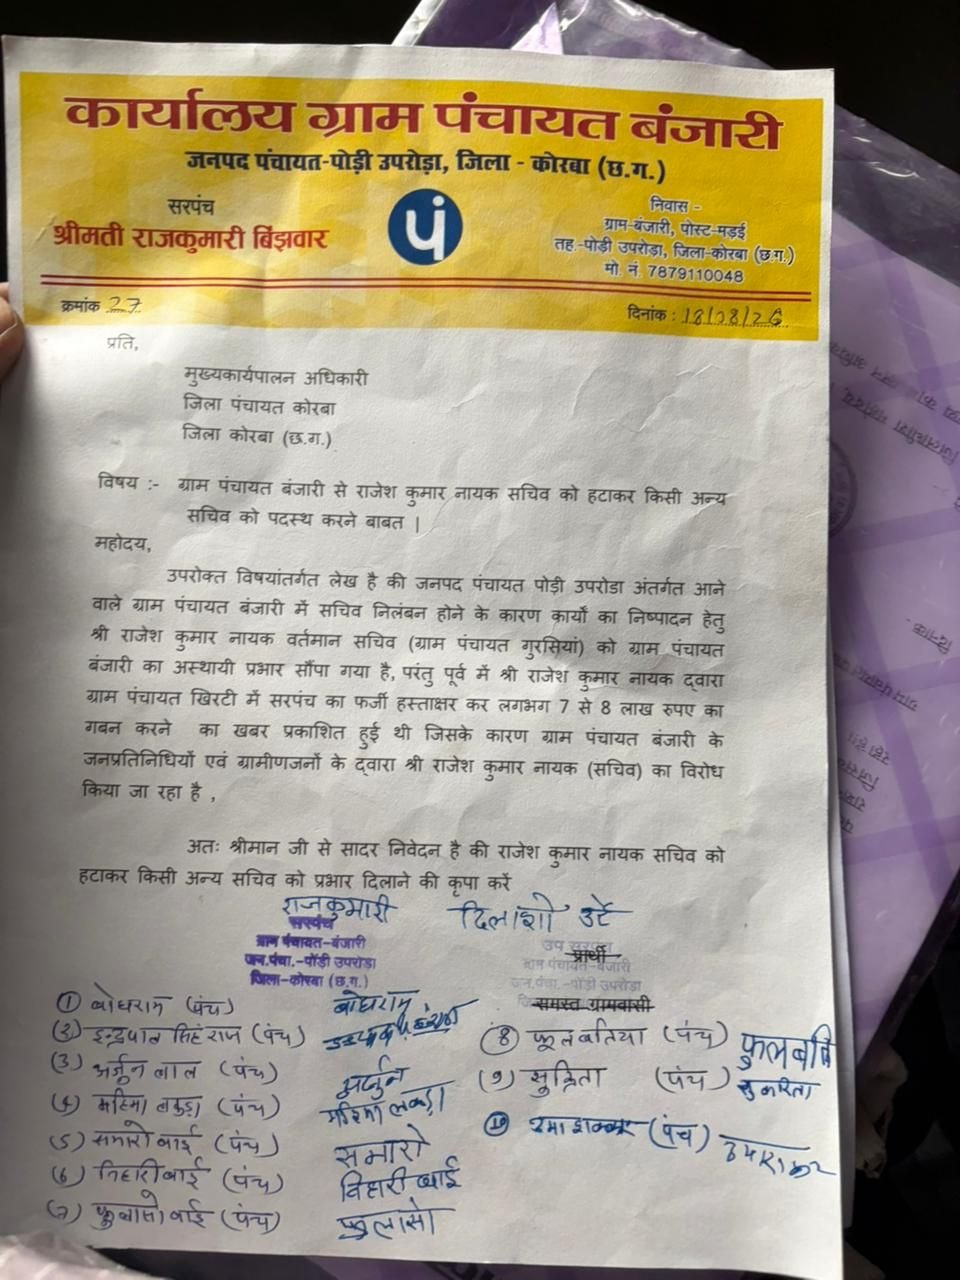 कार्यालय ग्राम पंचायत बंजारी
जनपद पंचायत-पोड़ी उपरोड़ा, जिला - कोरबा (छ.ग.)
सरपंच
श्रीमती राजकुमारी बिंझवार
पं
निवास -
ग्राम-बंजारी, पोस्ट-मड़ई
तह.-पोड़ी उपरोड़ा, जिला-कोरबा (छ.ग.)
मो. नं. 7879110048
क्रमांक 27
दिनांक :
प्रति,
मुख्यकार्यपालन अधिकारी
जिला पंचायत कोरबा
जिला कोरबा (छ.ग.)
विषय :- ग्राम पंचायत बंजारी से राजेश कुमार नायक सचिव को हटाकर किसी अन्य
सचिव को पदस्थ करने बाबत |
महोदय,
उपरोक्त विषयांतर्गत लेख है की जनपद पंचायत पोड़ी उपरोडा अंतर्गत आने
वाले ग्राम पंचायत बंजारी में सचिव निलंबन होने के कारण कार्यों का निष्पादन हेतु
श्री राजेश कुमार नायक वर्तमान सचिव (ग्राम पंचायत गुरसियां) को ग्राम पंचायत
बंजारी का अस्थायी प्रभार सौंपा गया है, परंतु पूर्व में श्री राजेश कुमार नायक द्वारा
ग्राम पंचायत खिरटी में सरपंच का फर्जी हस्ताक्षर कर लगभग 7 से 8 लाख रुपए का
गबन करने का खबर प्रकाशित हुई थी जिसके कारण ग्राम पंचायत बंजारी के
जनप्रतिनिधियों एवं ग्रामीणजनों के द्वारा श्री राजेश कुमार नायक (सचिव) का विरोध
किया जा रहा है ,
अतः श्रीमान जी से सादर निवेदन है की राजेश कुमार नायक सचिव को
हटाकर किसी अन्य सचिव को प्रभार दिलाने की कृपा करें
राजकुमारी
सरपंच
ग्राम पंचायत-बंजारी
जन.पंचा.-पोंड़ी उपरोडा
जिला-कोरबा (छ.ग.)
दिलाशो उर्रे
उप सरपंच
प्रार्थी
ग्राम पंचायत-बंजारी
जन.पंचा.-पोंड़ी उपरोडा
समस्त ग्रामवासी
(1) बोधराम (पंच) बोधराम
(2) इन्द्रपाल सिंह राज (पंच)
(3) अर्जुन लाल (पंच) अर्जुन
(4) महिमा लकड़ा (पंच) महिमा लकड़ा
(5) समारो बाई (पंच) समारो
(6) बिहारी बाई (पंच) बिहारी बाई
(7) फुलासो बाई (पंच) फुलासो
(8) फूलबतिया (पंच)
(9) सुक्रिता (पंच) सुकरिता
(10) (पंच)